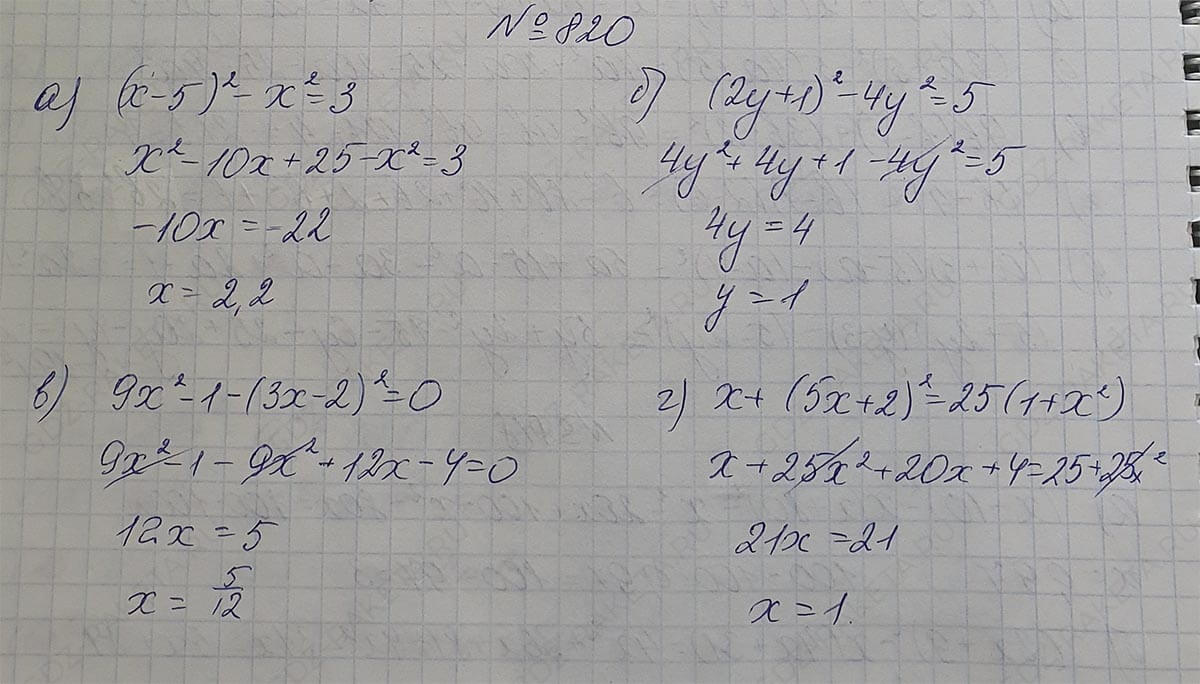 №820
а) (x-5)² - x² = 3
x² - 10x + 25 - x² = 3
-10x = -22
x = 2,2
б) (2y+1)² - 4y² = 5
4y² + 4y + 1 - 4y² = 5
4y = 4
y = 1
в) 9x² - 1 - (3x-2)² = 0
9x² - 1 - 9x² + 12x - 4 = 0
12x = 5
x = 5/12
г) x + (5x+2)² = 25(1+x²)
x + 25x² + 20x + 4 = 25 + 25x²
21x = 21
x = 1.